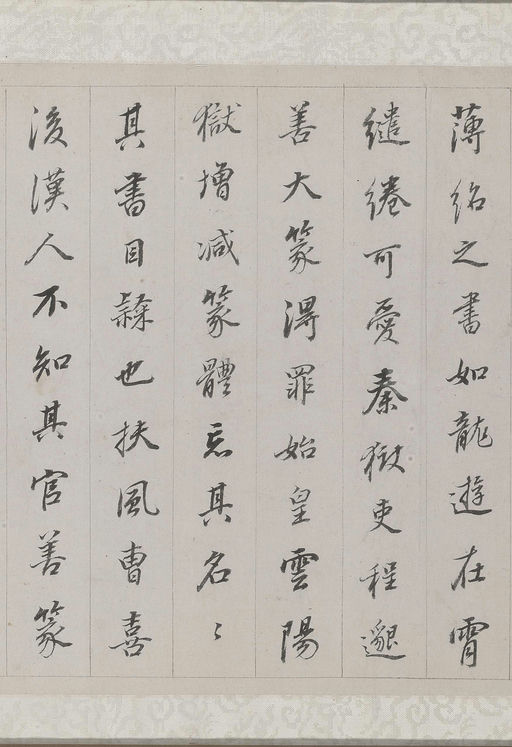 薄紹之書如龍遊在霄
繾綣可愛秦獄吏程邈
善大篆得罪始皇雲陽
獄增減篆體去其名〻
其書曰隸也扶風曹喜
後漢人不知其官善篆